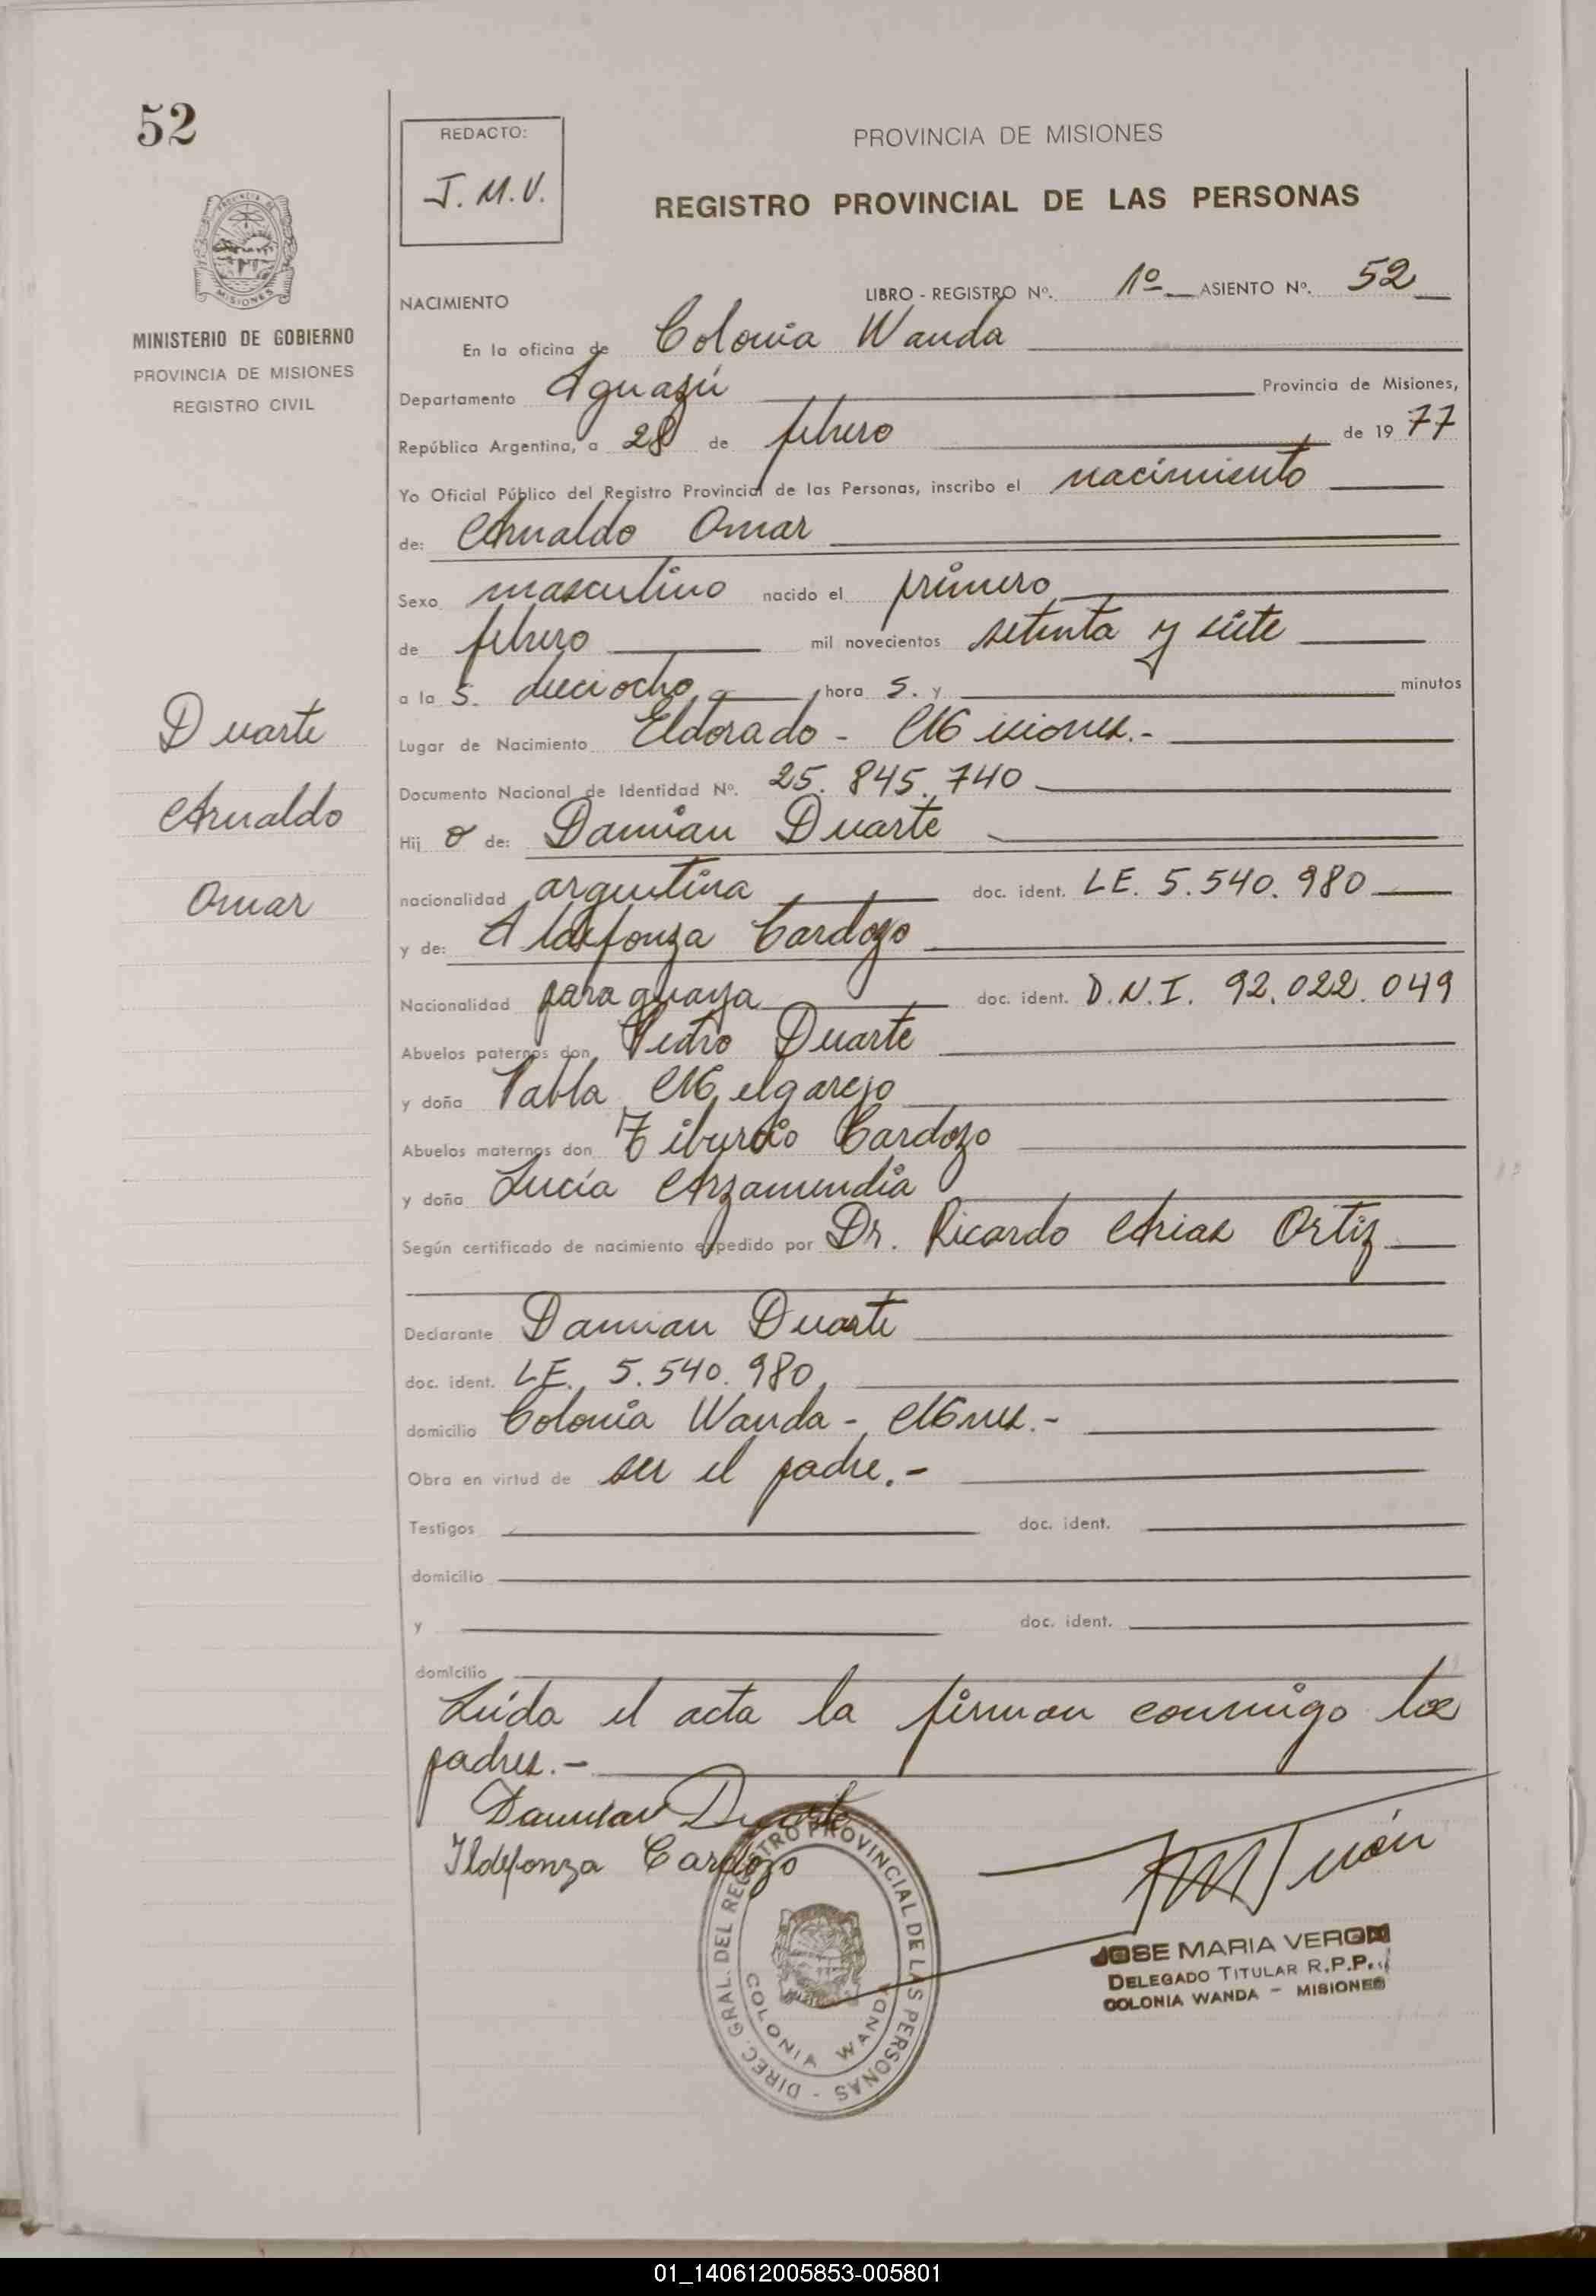 52
REDACTO:
J. M. V.
PROVINCIA DE MISIONES
REGISTRO PROVINCIAL DE LAS PERSONAS
MISIONES
MINISTERIO DE GOBIERNO
PROVINCIA DE MISIONES
REGISTRO CIVIL
NACIMIENTO
LIBRO - REGISTRO Nº. 1º ASIENTO Nº. 52
En la oficina de Colonia Wanda
Departamento Iguazú Provincia de Misiones,
República Argentina, a 28 de febrero de 19 77
Yo Oficial Público del Registro Provincial de las Personas, inscribo el nacimiento
de: Arnaldo Omar
Sexo masculino nacido el primero
de febrero mil novecientos setenta y siete
a la s. dieciocho hora s. y minutos
Duarte
Arnaldo
Omar
Lugar de Nacimiento Eldorado - Misiones.-
Documento Nacional de Identidad Nº. 25.845.740
Hij o de: Damian Duarte
nacionalidad argentina doc. ident. LE. 5.540.980
y de: Cardozo
Nacionalidad paraguaya doc. ident. D.N.I. 92.022.049
Abuelos paternos don Pedro Duarte
y doña Pabla Melgarejo
Abuelos maternos don Tiburcio Cardozo
y doña Lucía Arzamendia
Según certificado de nacimiento expedido por Dr. Ricardo Arias Ortiz
Declarante Damian Duarte
doc. ident. LE. 5.540.980
domicilio Colonia Wanda - Mnes.-
Obra en virtud de ser el padre.-
Testigos doc. ident.
domicilio
y doc. ident.
domicilio
Leída el acta la firman conmigo los
padres.-
Damian Duarte
Ildefonza Cardozo
DIREC. GRAL. DEL REGISTRO PROVINCIAL DE LAS PERSONAS -
COLONIA WANDA
JOSE MARIA VERON
DELEGADO TITULAR R.P.P.
COLONIA WANDA - MISIONES
01_140612005853-005801